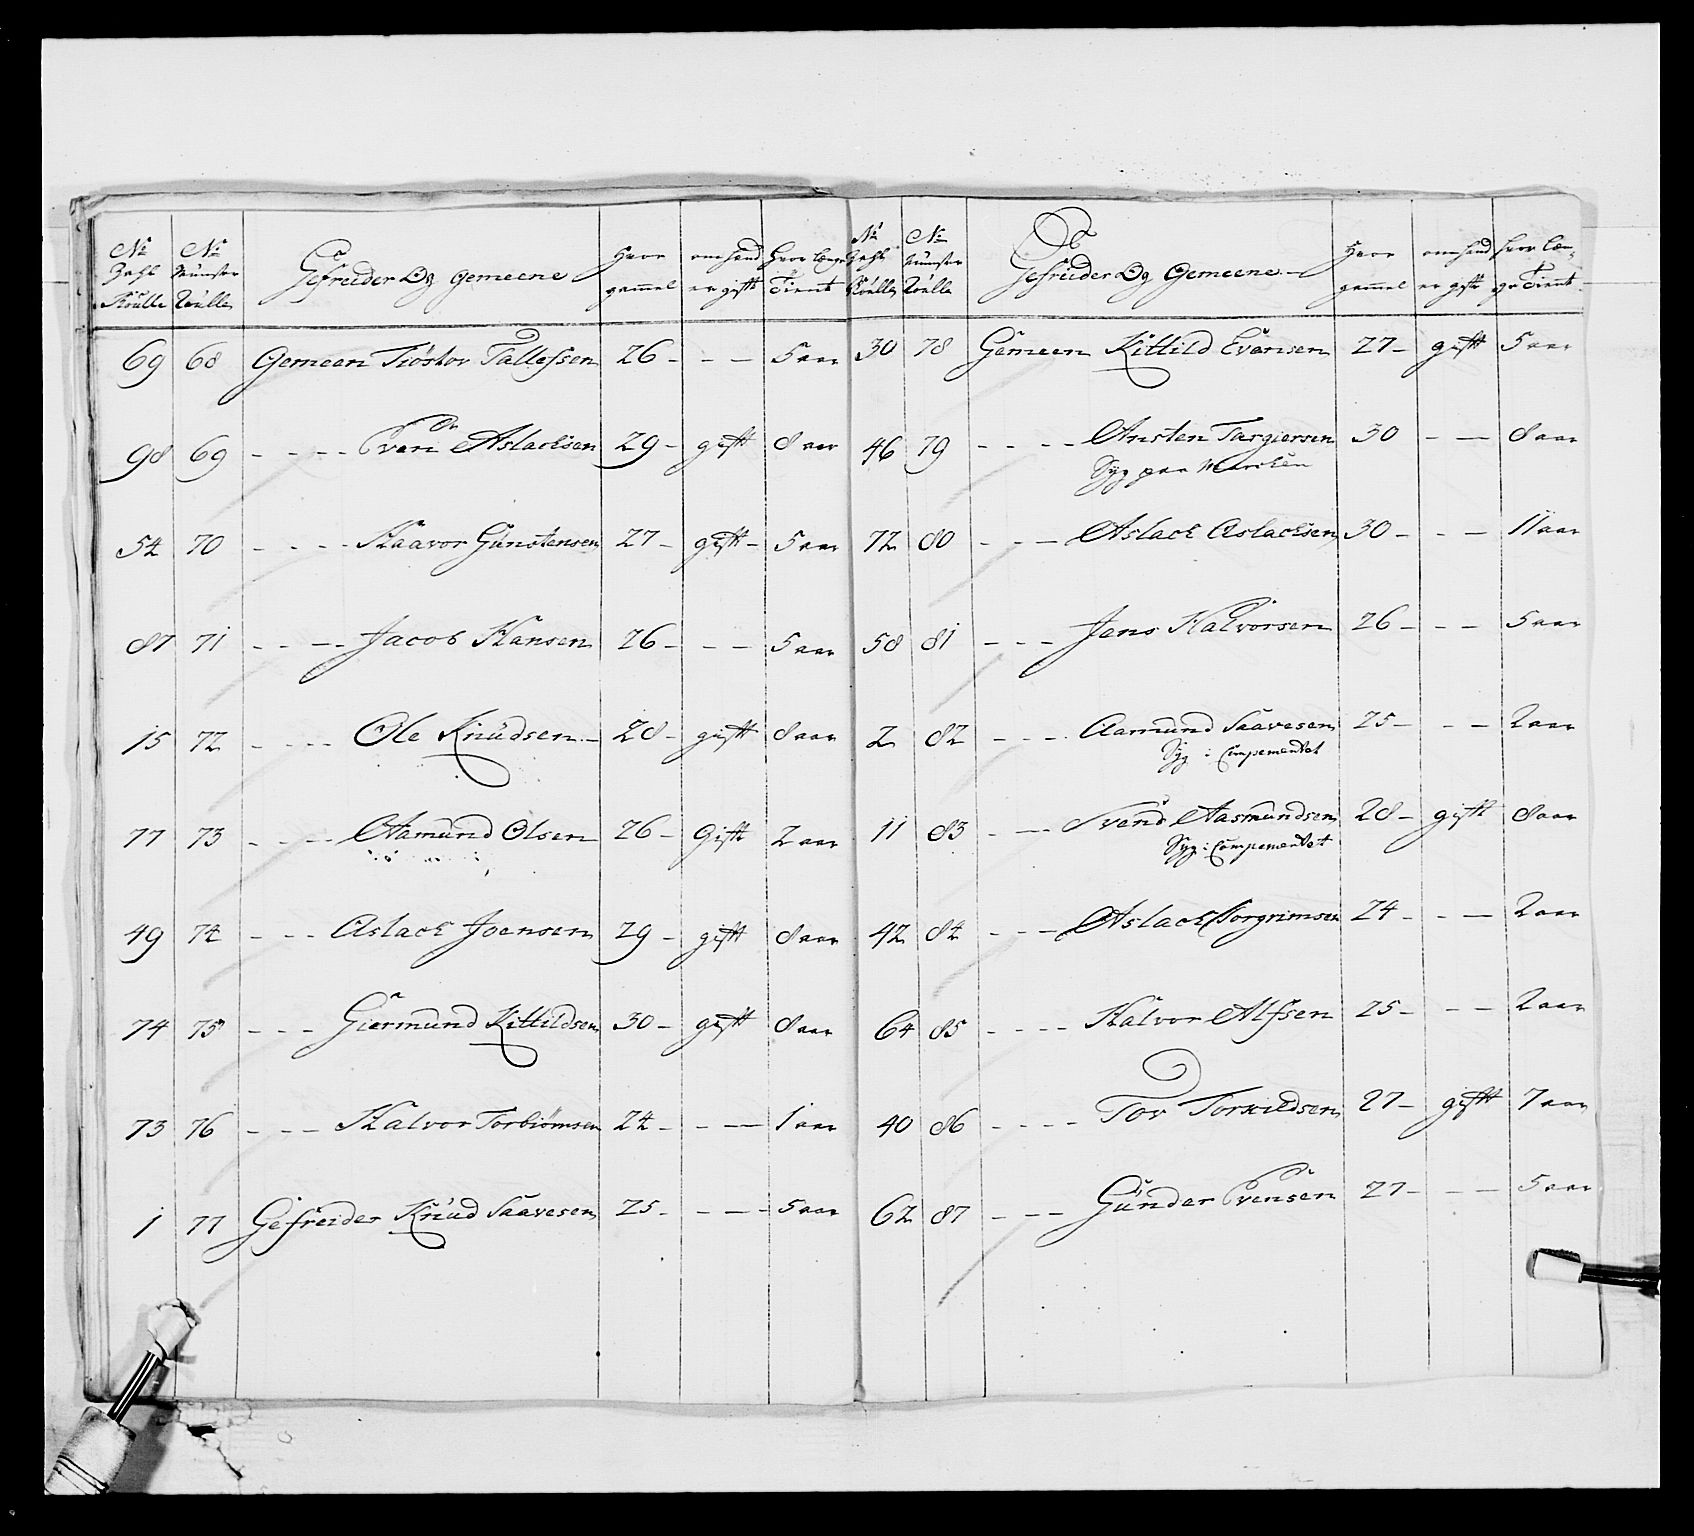 No Zahl Roulle | No Münster Roulle | Gefreider Og Gemeene | Hvor gammel | om hand er gift | Hvor længe Tient
69 | 68 | Gemeen Tiöstov Tallefsen | 26 - | - - | 5 aar
98 | 69 | - - - - Even Aslacksen | 29 - | gift | 8 aar
54 | 70 | - - - - Haavor Gunstensen | 27 - | gift - | 5 aar
87 | 71 | - - - - Jacob Hansen | 26 - | - - | 5 aar
15 | 72 | - - - - Ole Knudsen | 28 - | gift | 8 aar
77 | 73 | - - - - Aamund Olsen | 26 - | Gift | 2 aar
49 | 74 | - - - Aslack Joensen | 29 - | gift | 8 aar
74 | 75 | - - - Giermund Kittildsen | 30 - | gift | 8 aar
73 | 76 | - - - Halvor Torbiörnsen | 24 - | - - | 1 aar
1 | 77 | Gefreider Knud Saavesen | 25 - | - - - | 5 aar
No Zahl Roulle | No Münster Roulle | Gefreider Og Gemeene | Hvor gammel | om hand er gift | hvor læn- ge Tient
30 | 78 | Gemeen Kittild Evensen | 27 - | gift | 5 aar
46 | 79 | - - - - Ansten Targiersen | 30 | - - | 8 aar
Syg paa Marchen
72 | 80 | - - - Aslack Aslacksen | 30 - | - - | 11 aar
58 | 81 | - - - Jens Halvorsen | 26 - | - - | 5 aar
2 | 82 | - - - Aamund Saavesen | 25 - | - - | 2 aar
Syg i Campementet
11 | 83 | - - - Svend Aasmundsen | 28 - | gift | 8 aar
Syg i Campementet
42 | 84 | - - - Aslack Torgrimsen | 24 - | - - | 2 aar
64 | 85 | - - - - Halvor Alfsen | 25 - | - - | 2 aar
40 | 86 | - - - - Tov Torkildsen | 27 - | gift | 7 aar
62 | 87 | - - - Gunder Evensen | 27 - | - - | 5 aar